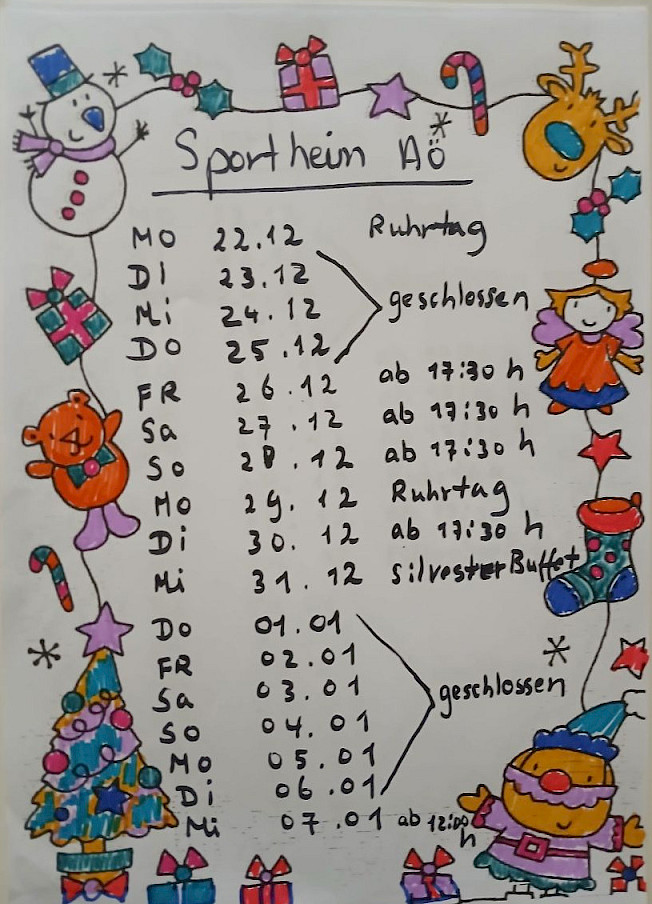 Sportheim AÖ
MO 22.12 Ruhrtag
DI 23.12
Mi 24.12 geschlossen
DO 25.12
FR 26.12 ab 17:30 h
Sa 27.12 ab 17:30 h
So 28.12 ab 17:30 h
MO 29.12 Ruhrtag
Di 30.12 ab 17:30 h
Mi 31.12 SilvesterBuffet
DO 01.01
FR 02.01
Sa 03.01 geschlossen
SO 04.01
MO 05.01
Di 06.01
Mi 07.01 ab 12:00 h